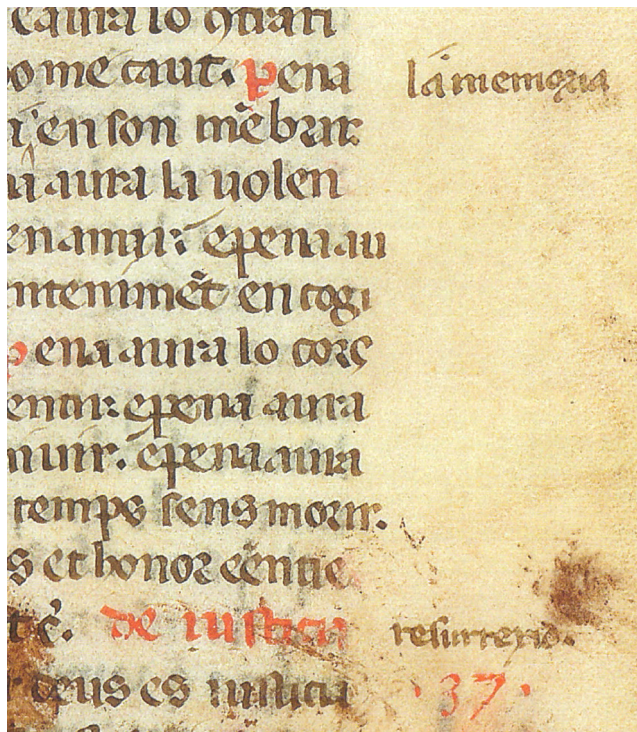 caura lo ɔ̃trari
o me caut. pena
en son mēbrar
aura la uolen
en amar: e pena au
ntenimēt en cogi
pena aura lo cors
entir: e pena aura
muir. e pena aura
temps sens morir.
s et honor eēntie
tē. de iusticia
deus es iusticia
la memoria
resurrexio.
.37.